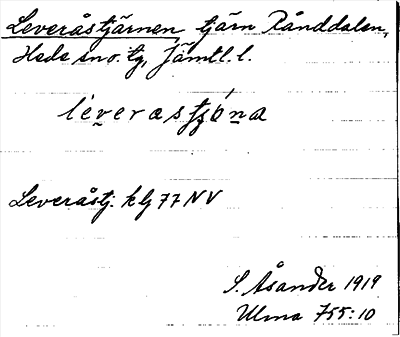 Leveråstjärnen tjärn Rånddalen,
Hede sno. tg, Jämtl. l.
léverastjóna
Leveråstj: kbl 77 NV
S. Åsander 1919
Ulma 755:10